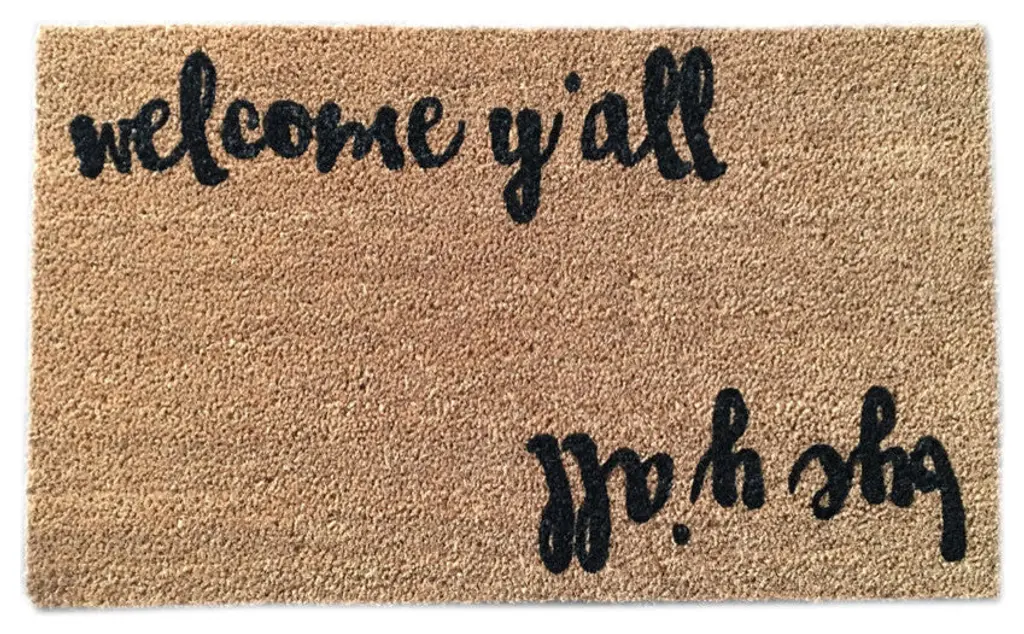 welcome y'all
bye y'all